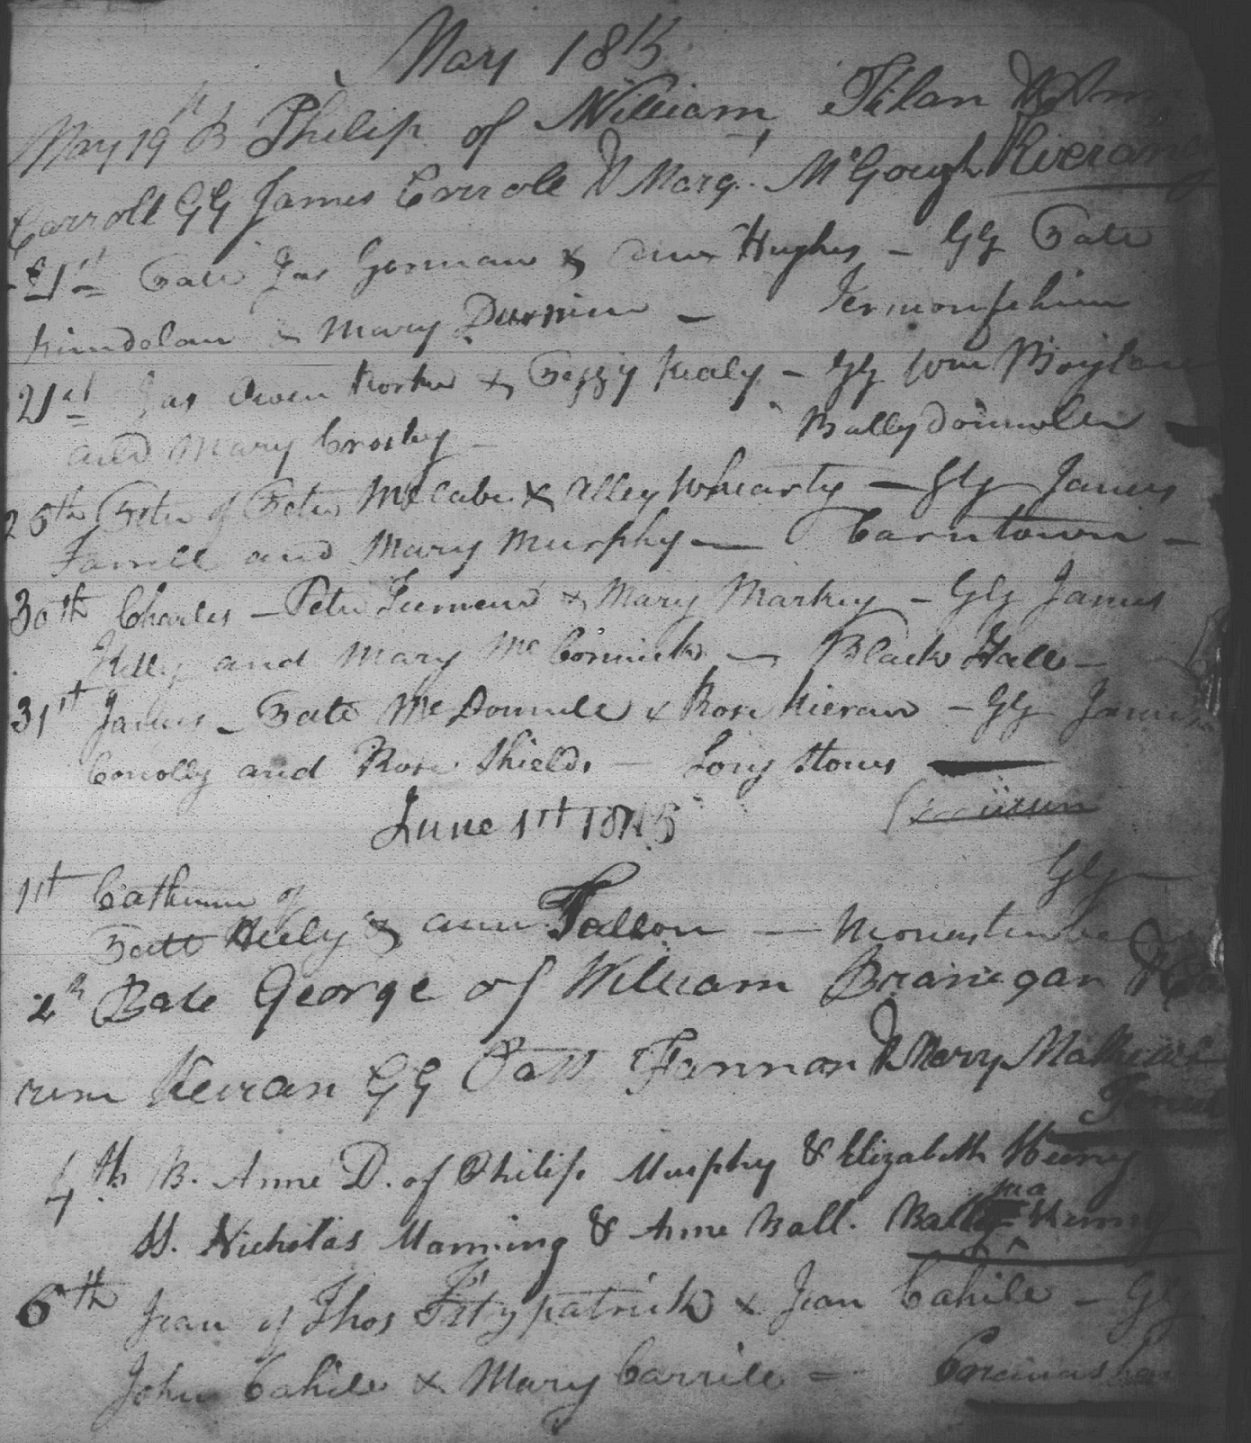 May 1815
May 19th B Philip of William Filan & Ann
Carroll GG James Carroll & Marg. McGough
21st Patt Jas Gorman & Hughes - GG Patt
Kindelan & Mary Durnin - Termonfehin
21st Jas Owen & Peggy Healy - GG Wm Boylan
and Mary Crosby - Ballydonnolen
26th Peter of Peter McCabe & Alley Whearty - GG James
Farrell and Mary Murphy - Carntown -
30th Charles - Peter & Mary Markey - GG James
Kelly and Mary McCormick - Black Hall -
31st James - Patt McDonnell & Rose Kieran - GG James
Conolly and Rose Shields - Long Stones
June 1st 1815
GG -
1st Catherine of
Patt Heely & Ann Fallon -
2th Bate George of William Branegan &
Keiran GG Patt Fannon & Mary
4th B. Anne D. of Philip Murphy & Elizabeth
S. Nicholas Manning & Anne Ball.
6th Jean of Thos Fitzpatrick & Jean Cahile - GG
John Cahile & Mary Carrile =